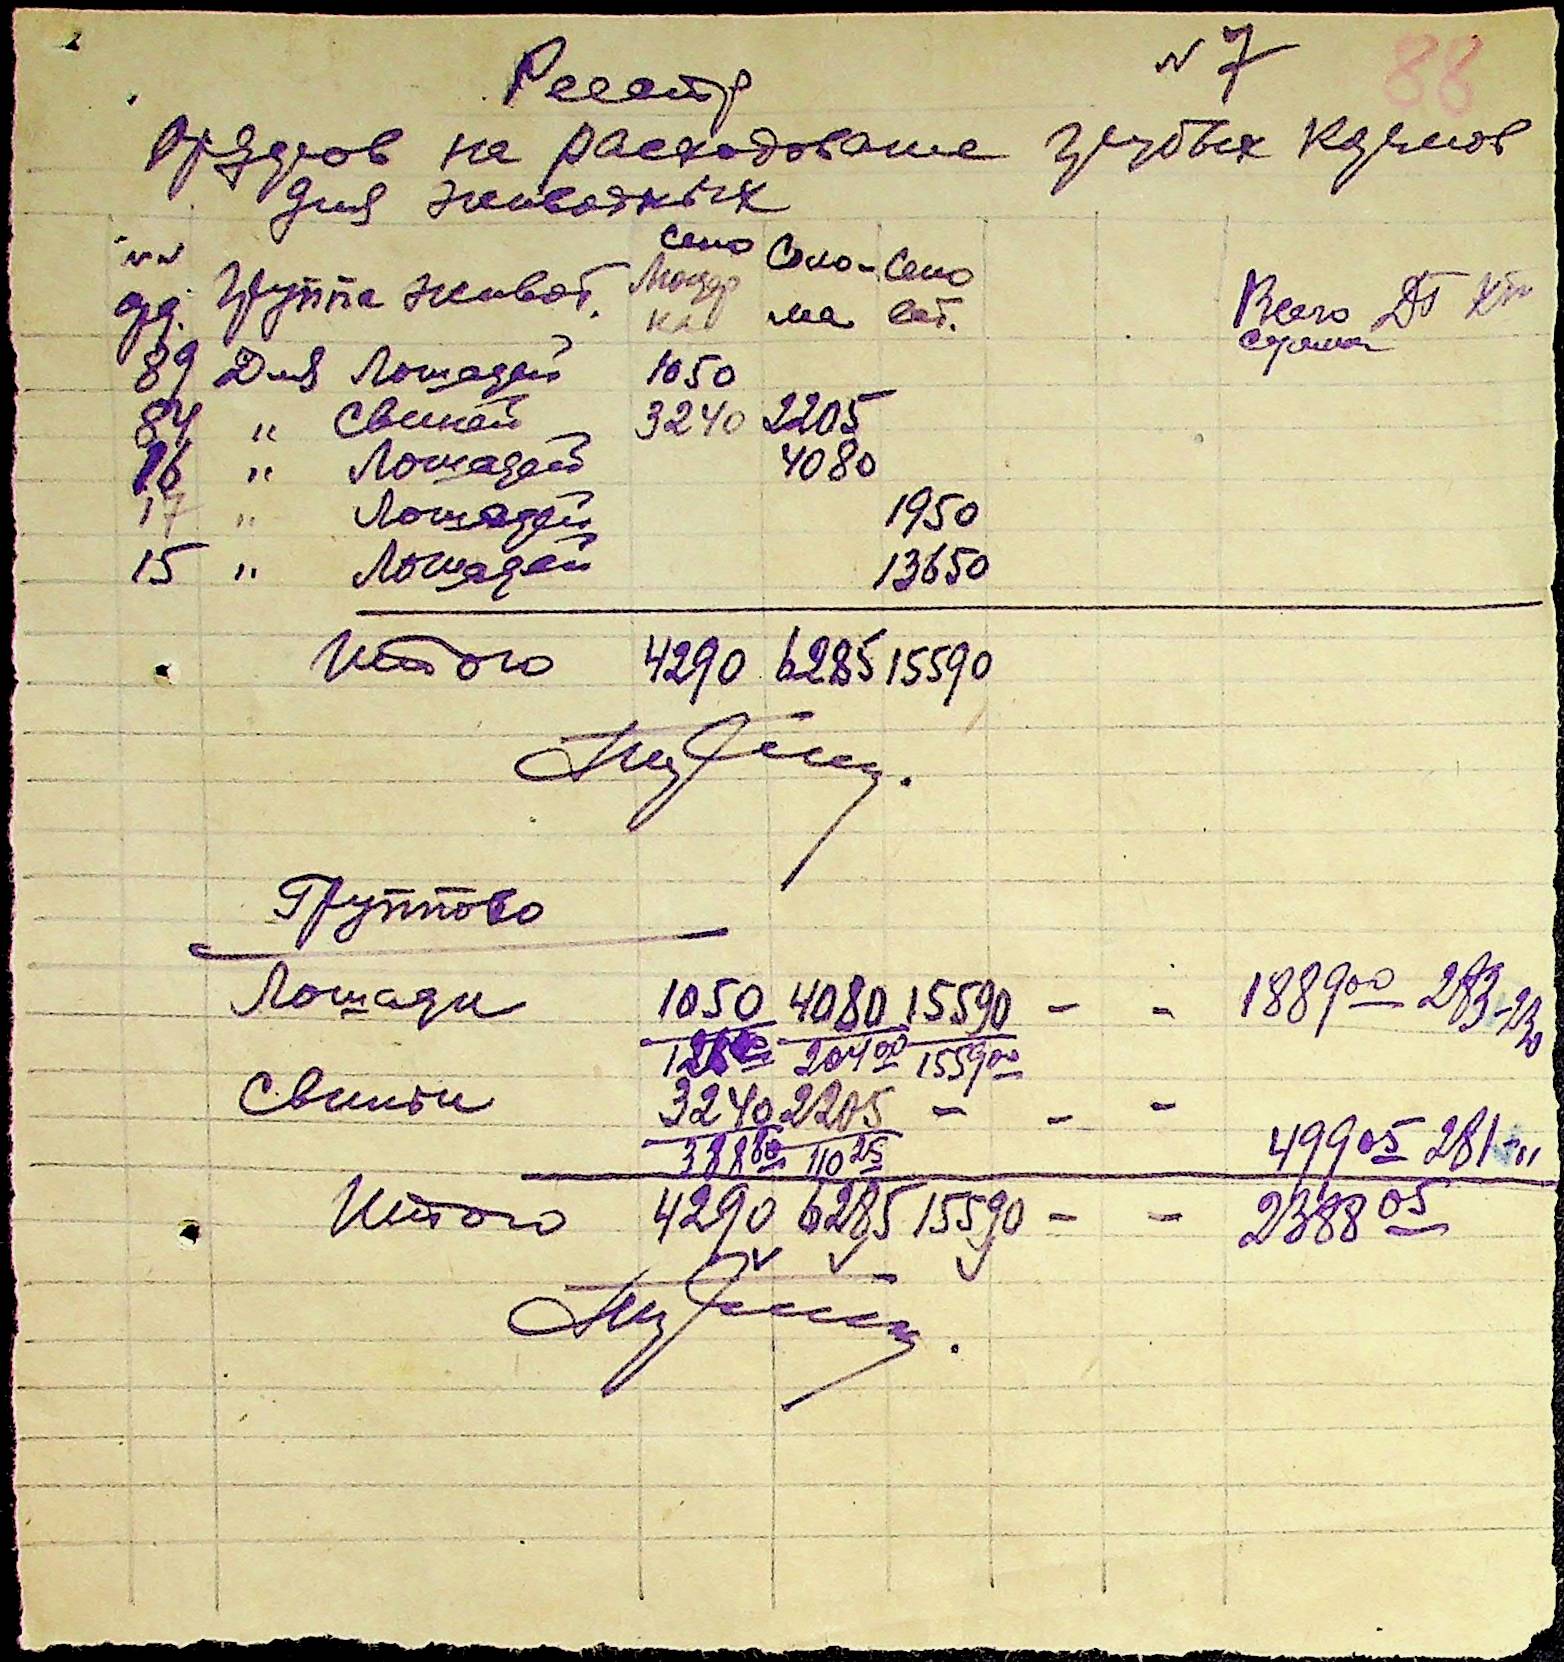 № 7 88
Реестр
Ордеров на расходование грубых кормов
для животных
№№ Группа живот. сено Соло- Сено
ор. ка ма вет. Всего Дт Кт
сумма
89 Для Лошадей 1050
84 " Свиней 3240 2205
16 " Лошадей 4080
17 " Лошадей 1950
15 " Лошадей 13650
Итого 4290 6285 15590
Группово
Лошади 1050 4080 15590 - - 1889 00 283-
126 204 00 1559 00
Свиньи 3240 2205 - - -
388 80 110 25 499 05 281
Итого 4290 6285 15590 - - 2388 05